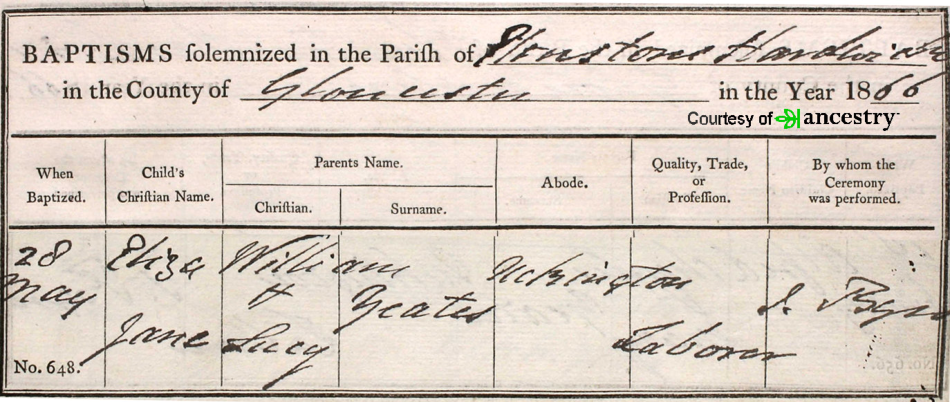 BAPTISMS solemnized in the Parish of Elmstone Hardwick
in the County of Gloucester in the Year 1866
Courtesy of ancestry
When Baptized.
Child's Christian Name.
Parents Name.
Christian.
Surname.
Abode.
Quality, Trade, or Profession.
By whom the Ceremony was performed.
28 May
Eliza Jane
William & Lucy
Yeates
Uckington
Laborer
No. 648.